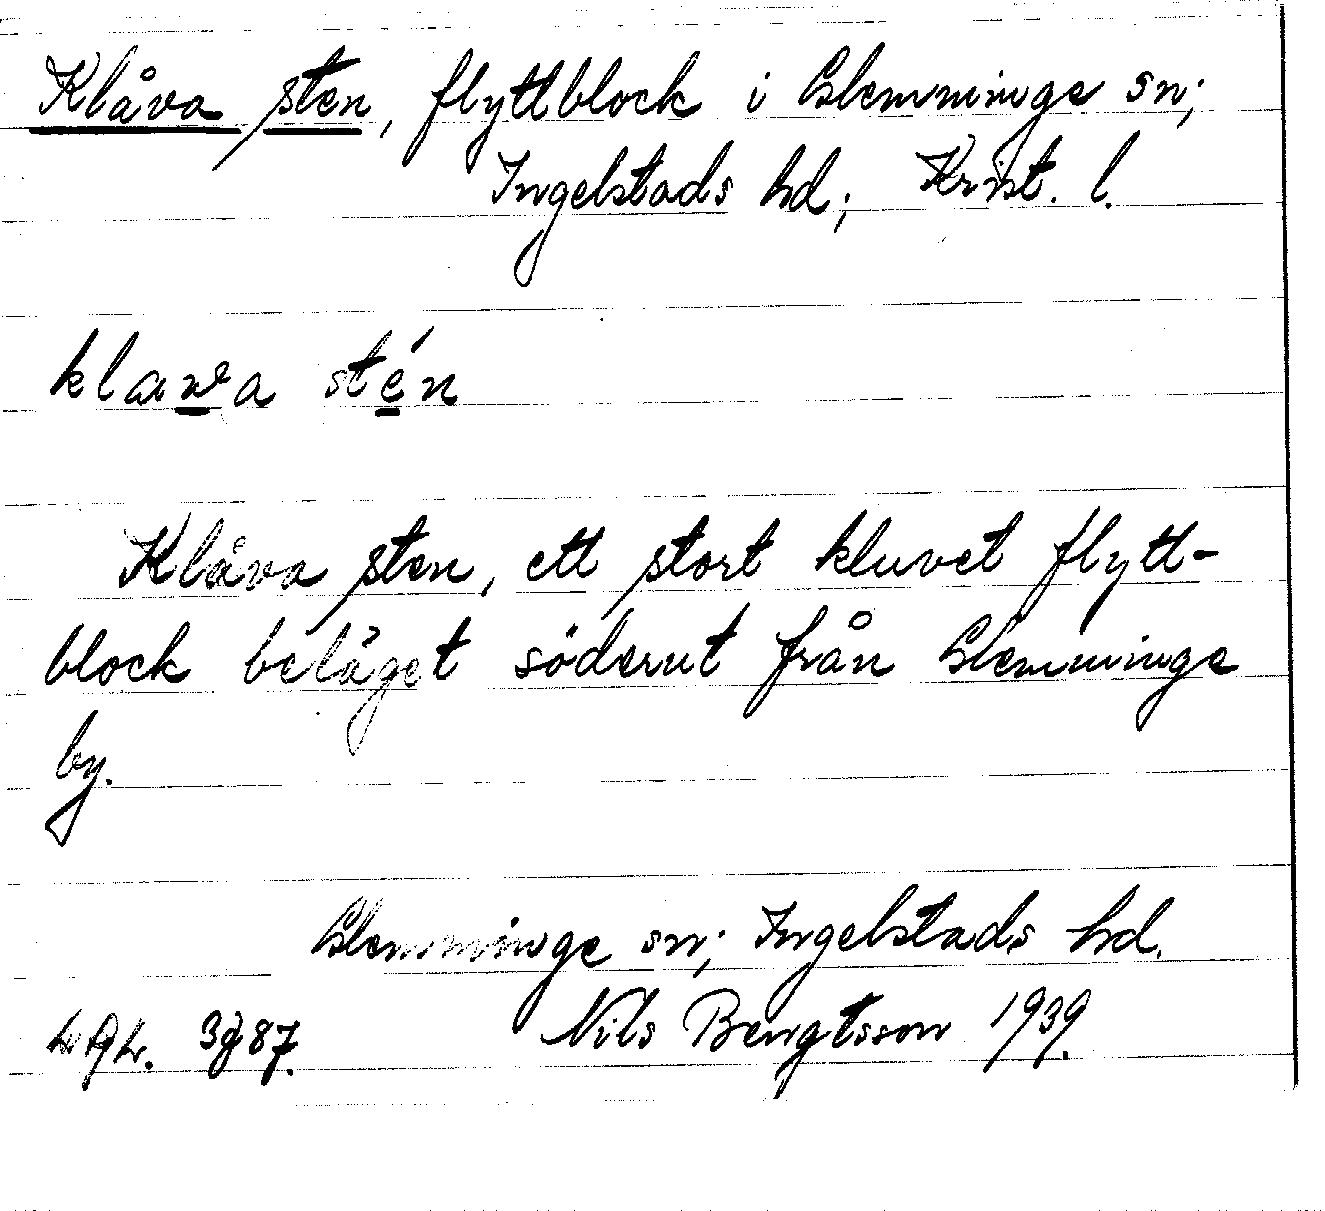 Klåva sten, flyttblock i Glemminge sn;
Ingelstads hd; Krist. l.
klawa stén
Klåva sten, ett stort kluvet flytt-
block beläget söderut från Glemminge
by.
Glemminge sn; Ingelstads hd.
Nils Bengtsson 1939.